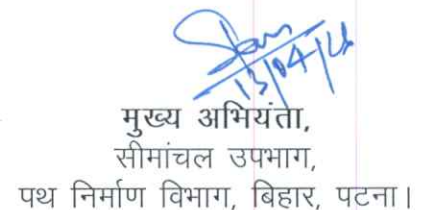 13/04/26
मुख्य अभियंता,
सीमांचल उपभाग,
पथ निर्माण विभाग, बिहार, पटना।